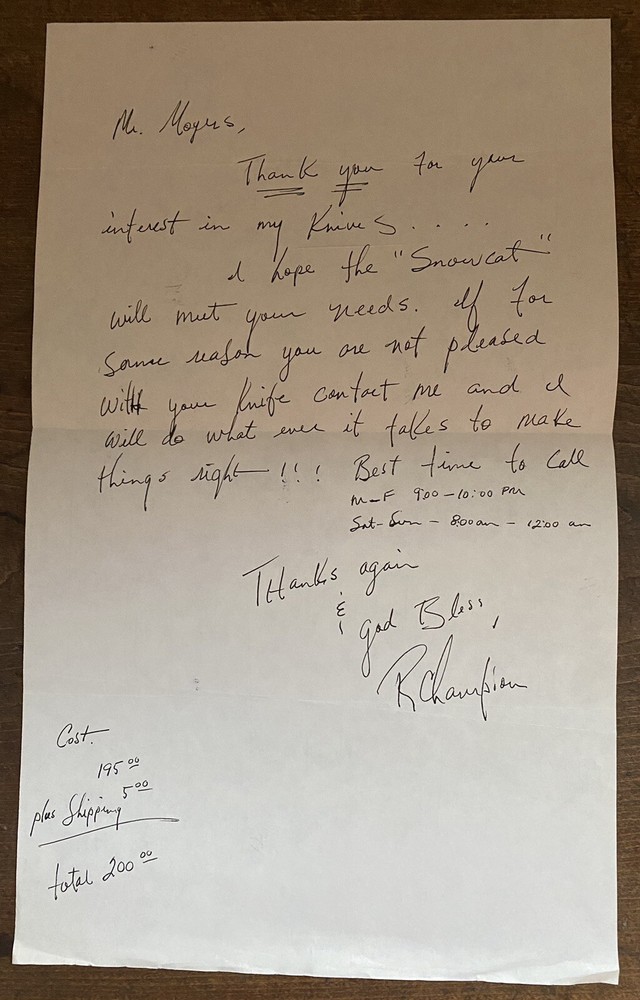 Mr. Moyers,
Thank you for your
interest in my Knives . . . .
I hope the "Snowcat"
will meet your needs. If For
Some reason you are not pleased
With your Knife contact me and I
will do what ever it takes to make
things right !!! Best time to Call
M-F 9:00-10:00 PM
Sat-Sun - 8:00am - 12:00 am
THanks again
&
God Bless,
R Champion
Cost.
195 00
plus Shipping 5 00
total 200 00